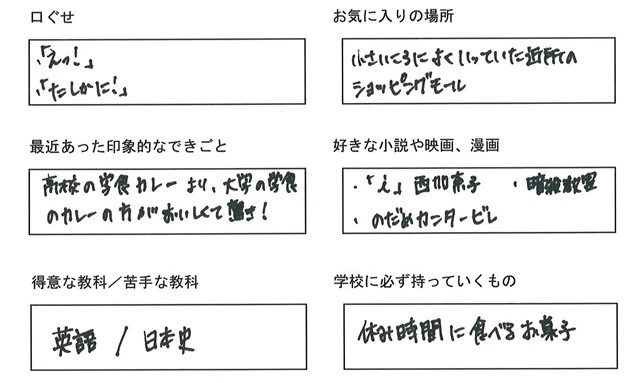 口ぐせ
・「えっ!」
・「たしかに!」
お気に入りの場所
小さいころによくいっていた近所の
ショッピングモール
最近あった印象的なできごと
高校の学食カレーより、大学の学食
のカレーの方がおいしくて驚き!
好きな小説や映画、漫画
・「え」西加奈子 ・暗殺教室
・のだめカンタービレ
得意な教科/苦手な教科
英語 / 日本史
学校に必ず持っていくもの
休み時間に食べるお菓子